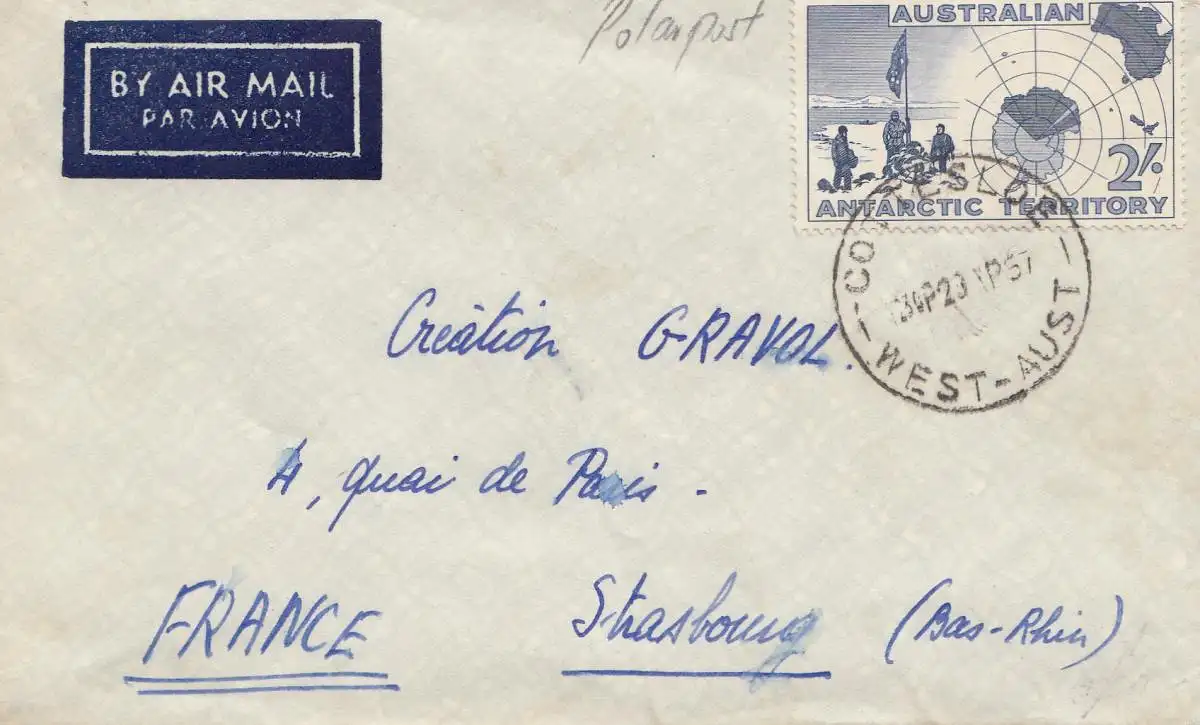 BY AIR MAIL
PAR AVION
Polarpost
AUSTRALIAN
2/-
ANTARCTIC TERRITORY
COTTESLOE
WEST-AUST
Création GRAVOL.
4, quai de Paris -
FRANCE Strasbourg (Bas-Rhin)